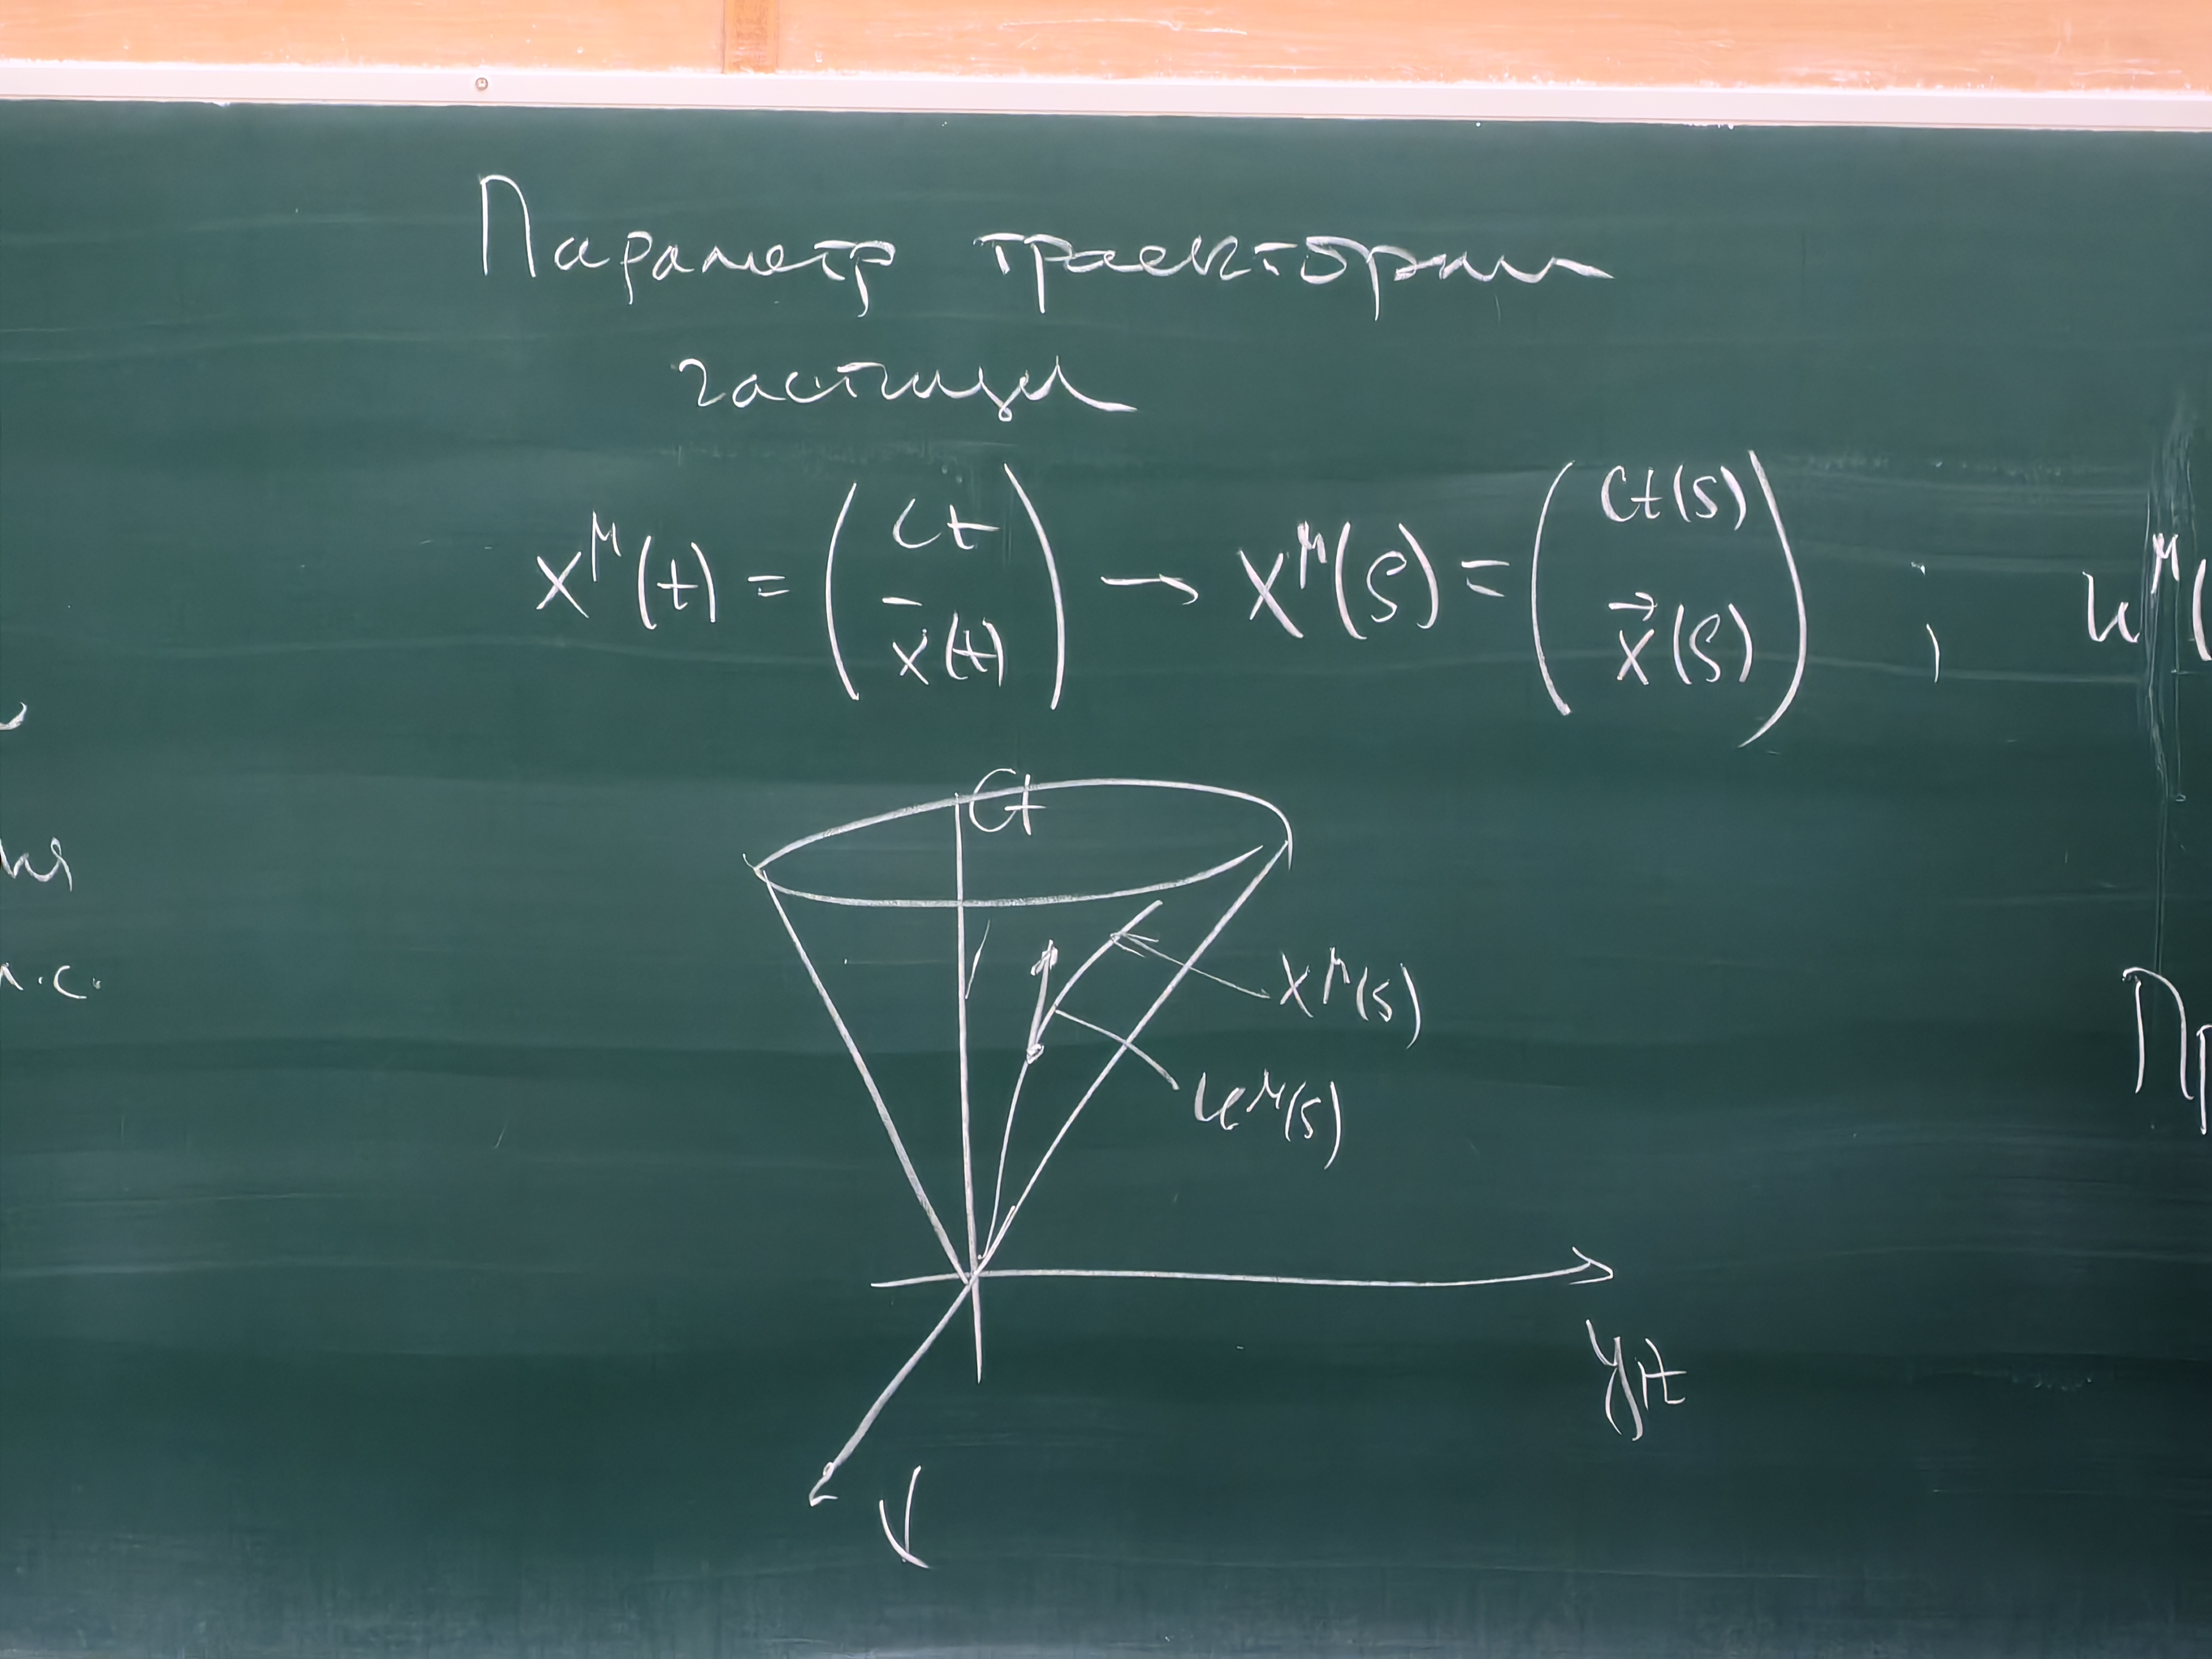 Параметр траектории
частицы
x^μ(t) = ( ct x̄(t) ) → x^μ(s) = ( ct(s) x⃗(s) ) ; u^μ(
ct
x^μ(s)
u^μ(s)
л.с.
Пр